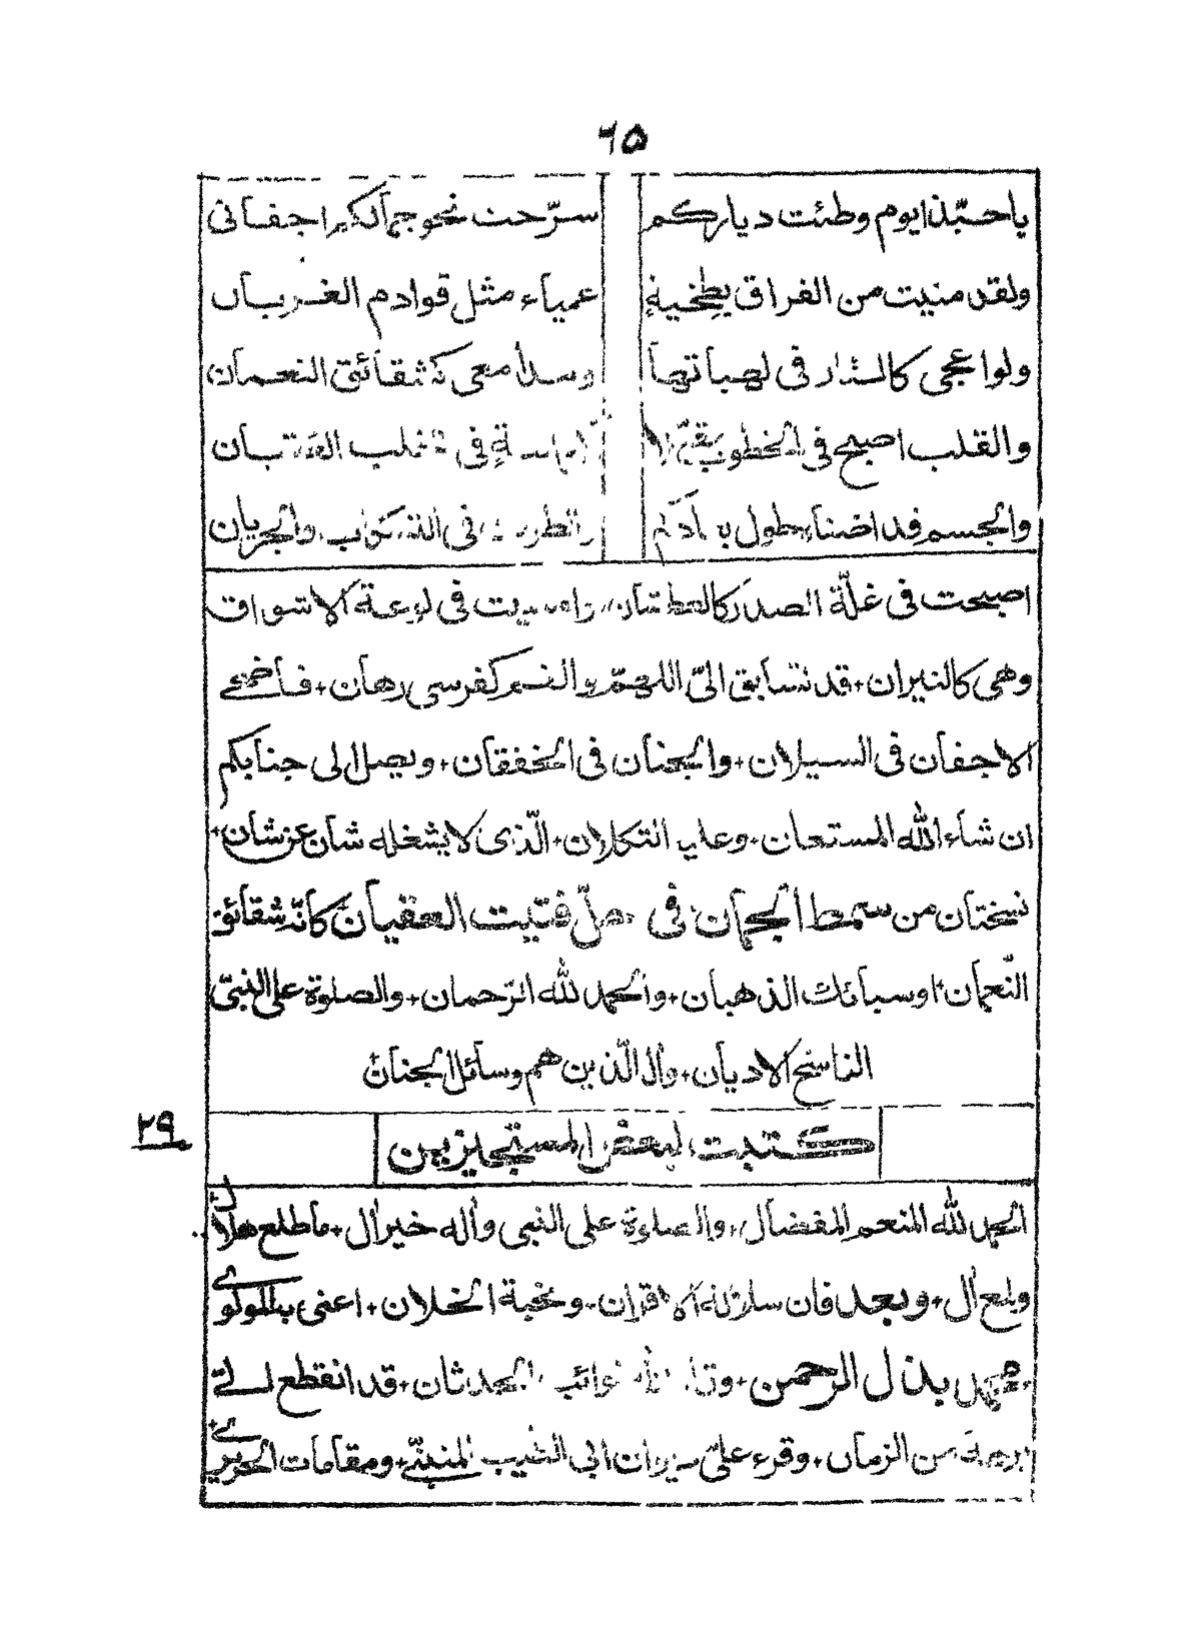 ٦٥
ياحبّذا يوم وطئت دياركم سرّحت نحو جمالكم اجفانى
ولقد منيت من الفراق بطخية عمياء مثل قوادم الغربان
ولواعجى كالنار فى لهباتها ومدامعى كشقائق النعمان
والقلب اصبح فى الخطوب فى تقلب
والجسم قد اضناه طول فى والجريان
اصبحت فى غلّة الصدر كالعطشان فى لوعة الاشواق
وهى كالنيران + قد تسابق الىّ الهمّ والغم كفرسى رهان + فاضحى
الاجفان فى السيلان + والجنان فى الخفقان + ويصل الى جنابكم
ان شاء الله المستعان + وعليه التكلان + الّذى لا يشغله شان عن شان +
نسختان من سمط الجمان فى حلّ فتيت العقيان كانّه شقائق
النّعمان + او سبائك الذهبان + والحمد لله الرّحمان + والصلوة على النبىّ
الناسخ الاديان + وال الّذين هم وسائل الجنان
٢٩
كتبت لبعض المستجيزين
الحمد لله المنعم المفضال + والصلوة على النبى واله خير ال + ما طلع هلال
ولمع ال + وبعد فان سلالة الاقران + ونخبة الخلان + اعنى بالمولوى
محمد بذل الرحمن + نوائب الحدثان + قد انقطع الى
برهة من الزمان + وقرء علىّ ديوان ابى الطيب المتنبّى + ومقامات الحريرى +